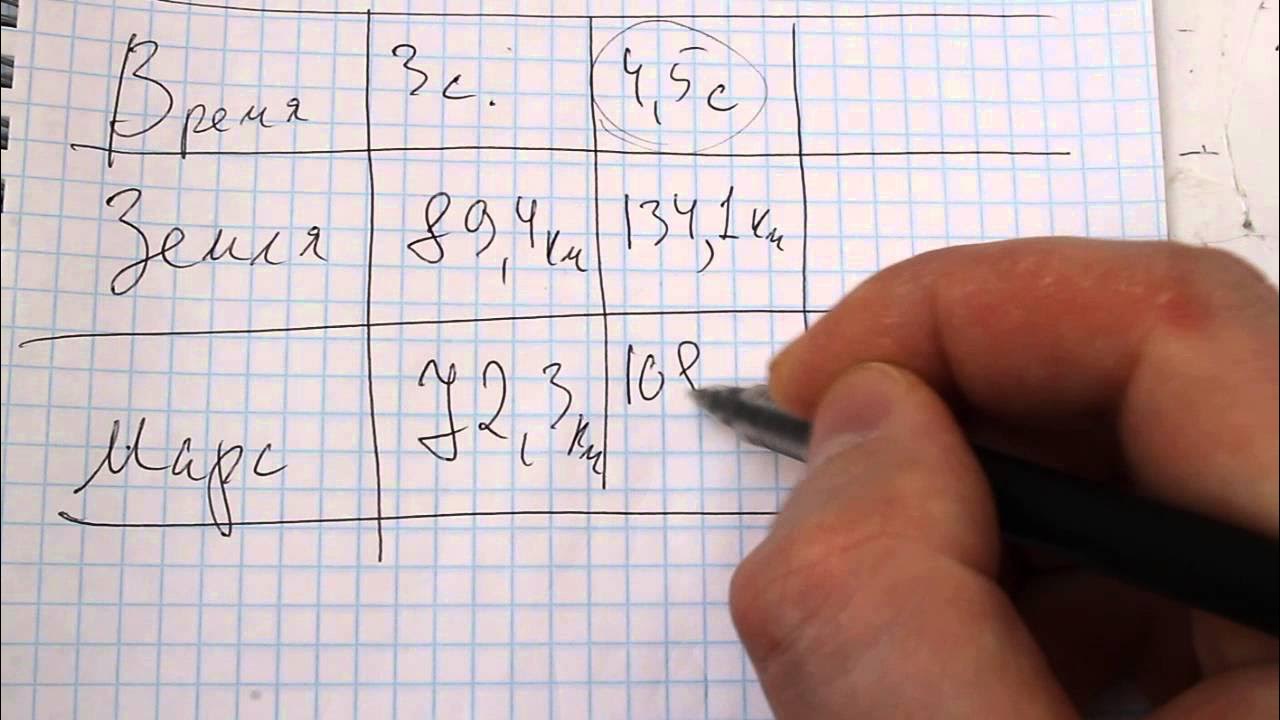 Время 3с. 4,5с
Земля 89,4км 134,1км
Марс 72,3км 108